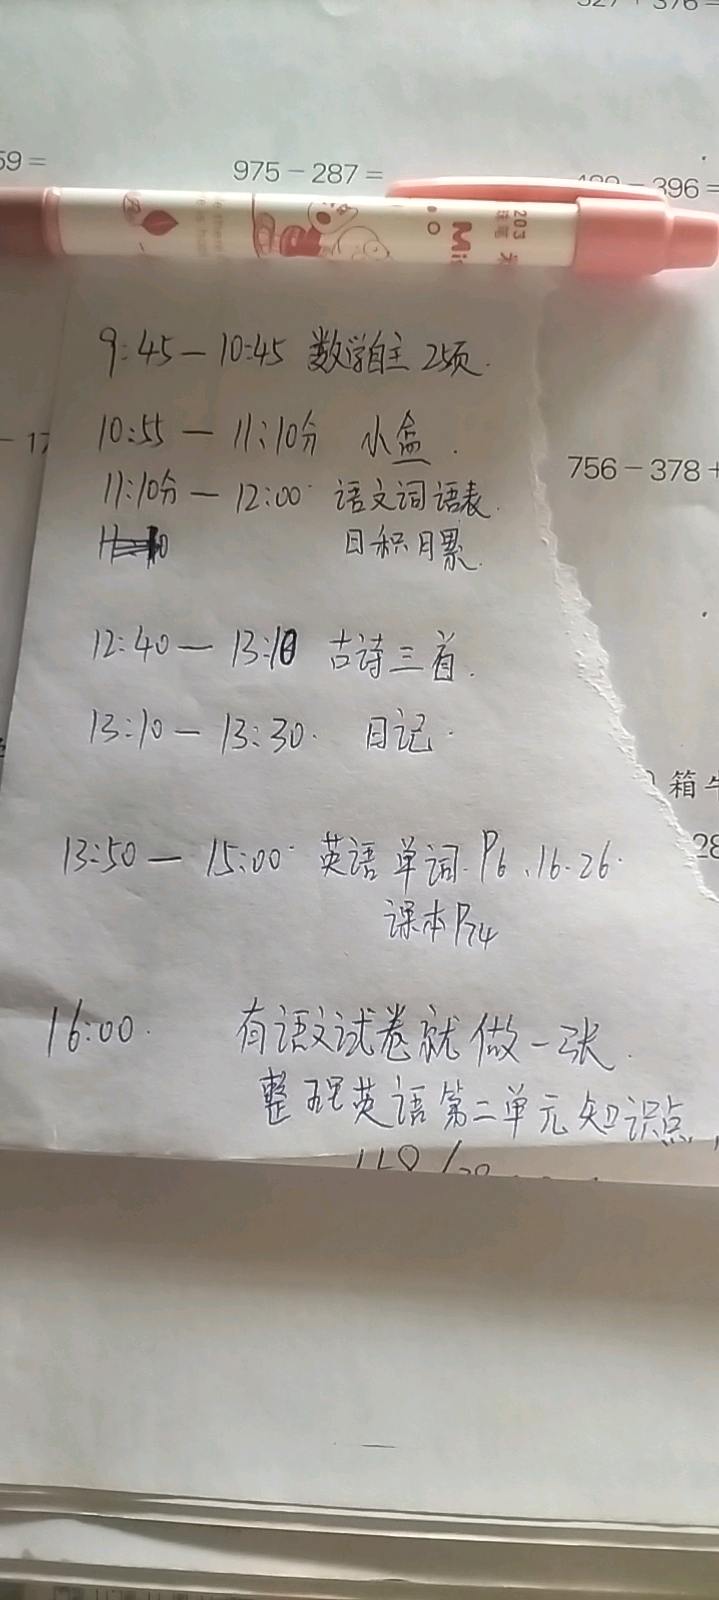 59 =
975 − 287 =
− 396 =
203
Mi
9:45 — 10:45 数学自主 25页.
10:55 — 11:10分 小盒.
11:10分 — 12:00 语文词语表.
日积月累.
756 − 378 +
12:40 — 13:10 古诗三首.
13:10 — 13:30. 日记.
箱
28
13:50 — 15:00 英语单词. P6、16. 26.
课本P74
16:00. 有语文试卷就做一张.
整理英语第二单元知识点,